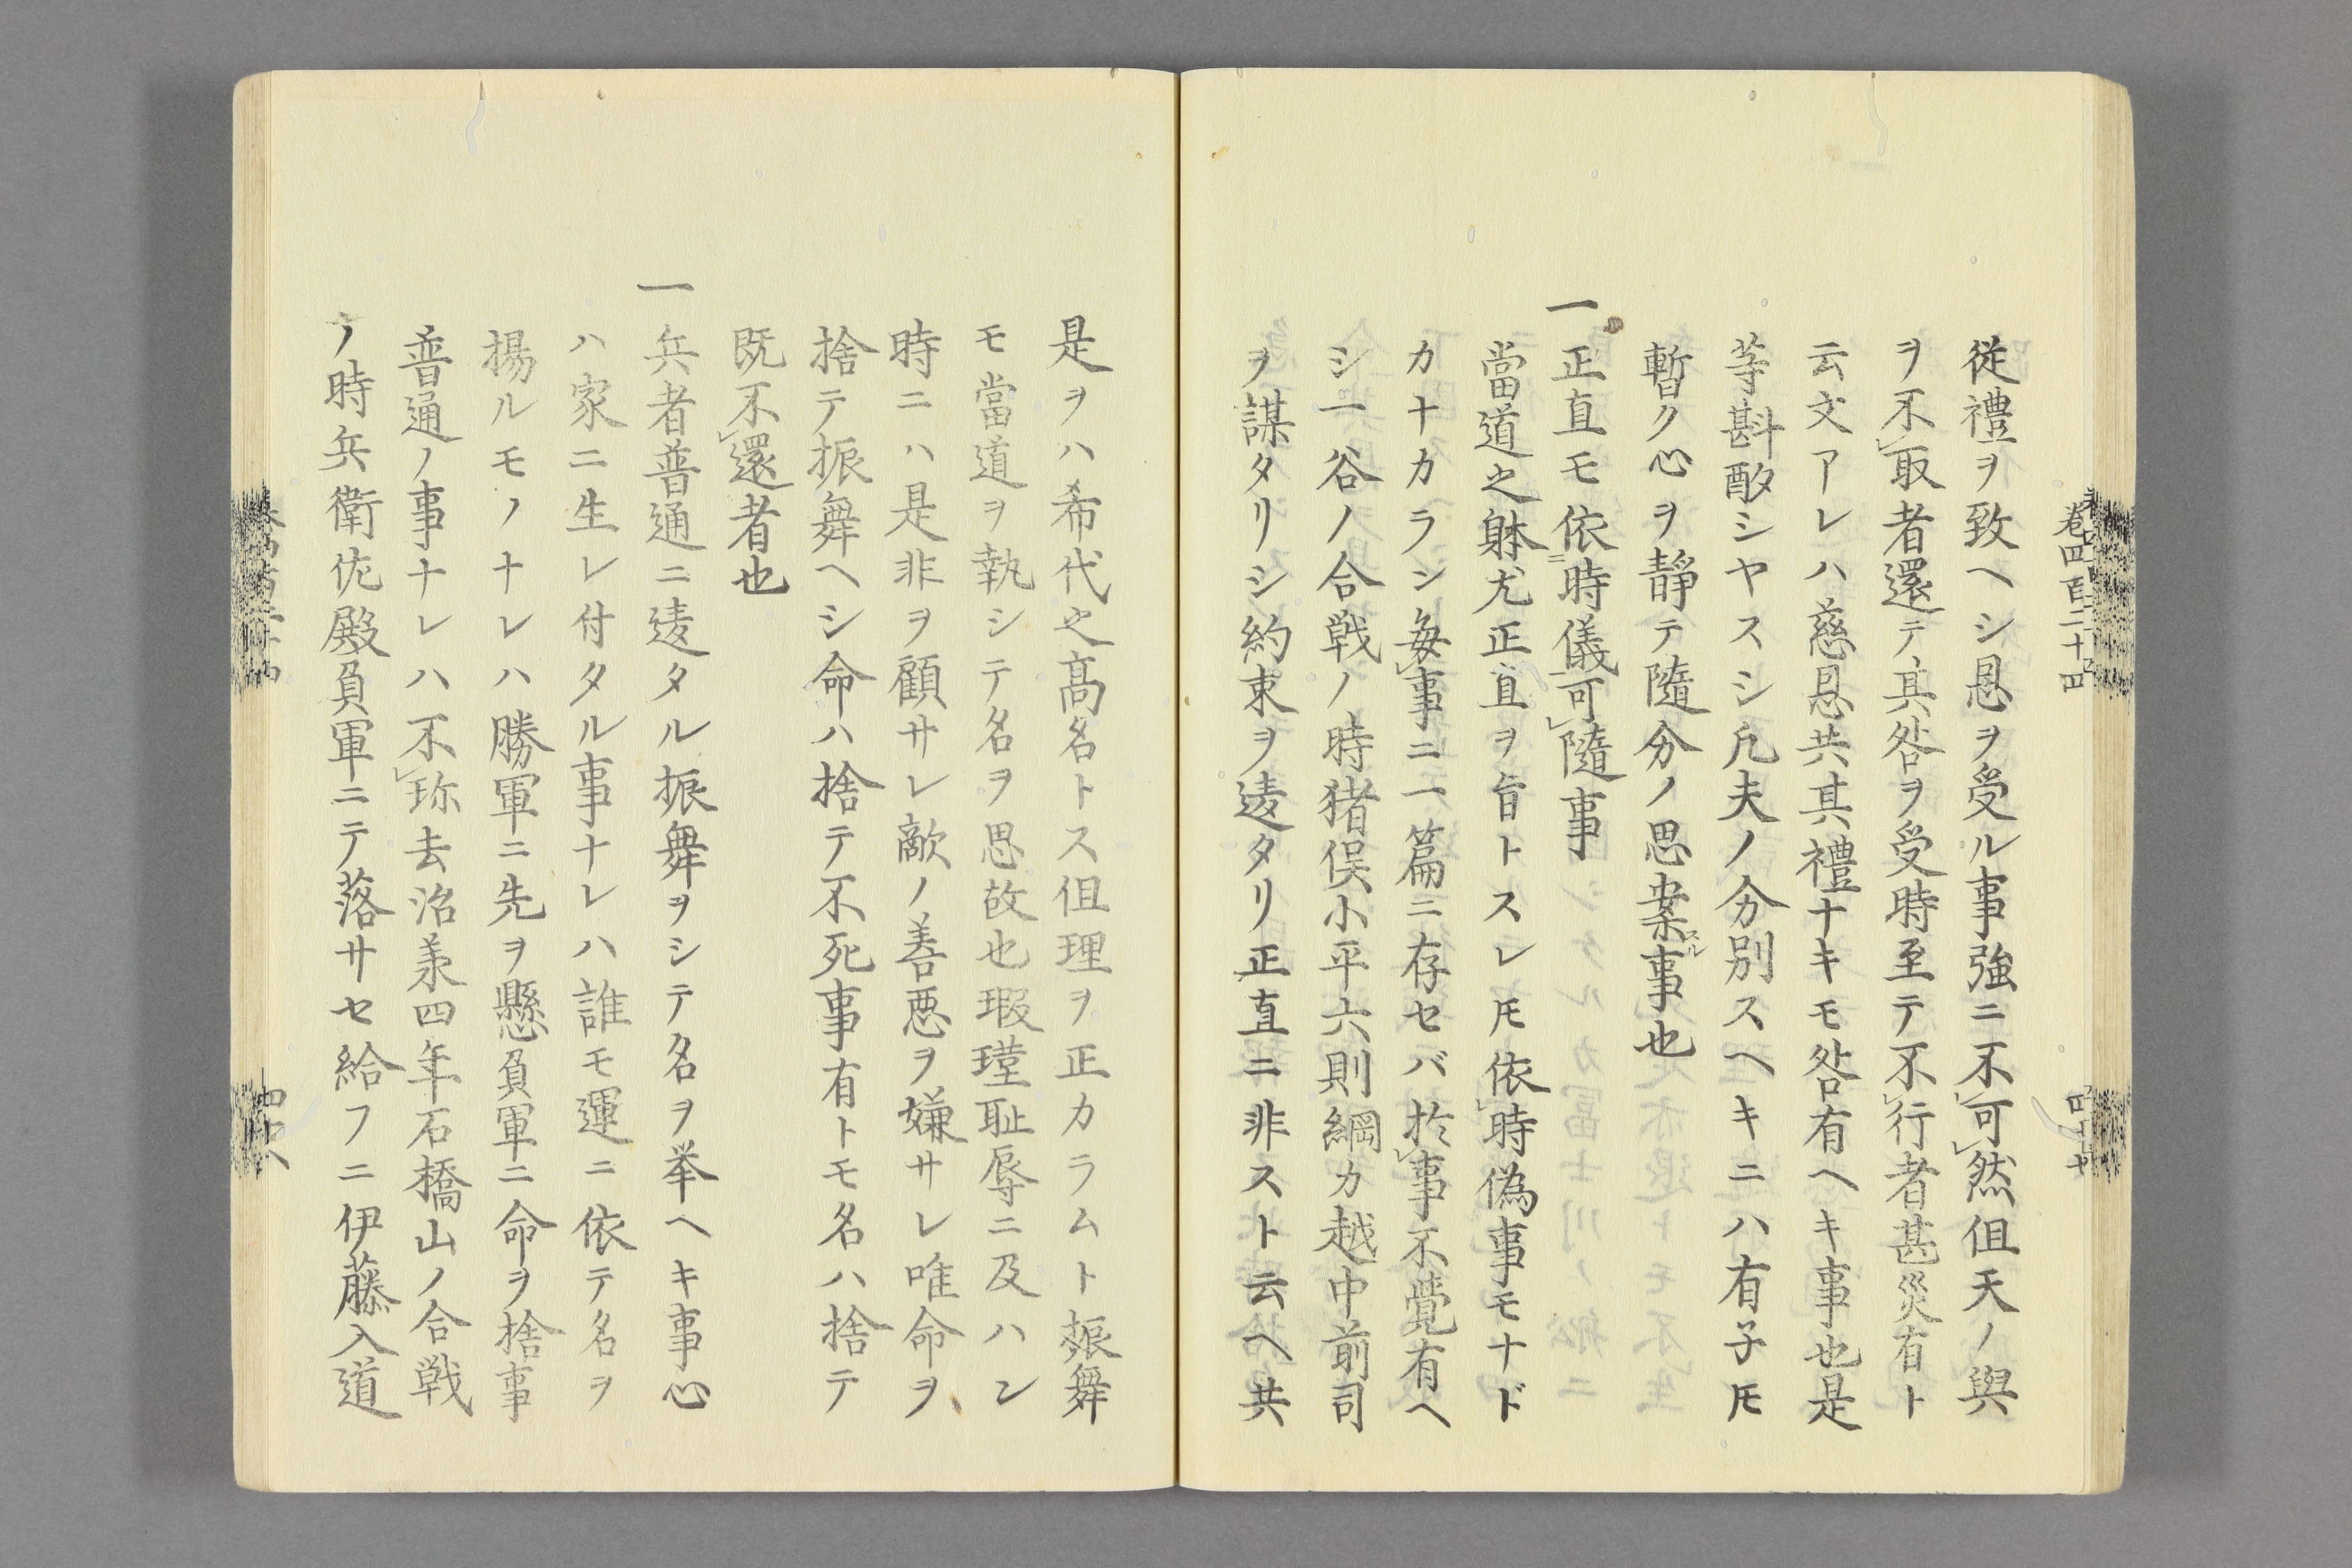 巻四百二十四
従禮ヲ致ヘシ恩ヲ受ル事強ニ不可然但天ノ與
ヲ不取者還テ其咎ヲ受時至テ不行者甚災有ト
云文アレハ慈恩共其禮ナキモ咎有ヘキ事也是
等斟酌シヤスシ凡夫ノ分別スヘキニハ有子𪜈
暫ク心ヲ静テ隨分ノ思案スル事也
一正直モ依ニ時儀可隨事
當道之躰尤正直ヲ旨トスレ𪜈依時偽事モナド
カナカラン毎事ニ一篇ニ存セバ於事不覺有ヘ
シ一谷ノ合戦ノ時猪俣小平六則綱カ越中前司
ヲ謀タリシ約束ヲ違タリ正直ニ非スト云ヘ共
是ヲハ希代之髙名トス但理ヲ正カラムト振舞
モ當道ヲ執シテ名ヲ思故也瑕瑾恥辱ニ及ハン
時ニハ是非ヲ顧サレ敵ノ善悪ヲ嫌サレ唯命ヲ
捨テ振舞ヘシ命ハ捨テ不死事有トモ名ハ捨テ
既不還者也
一兵者普通ニ違タル振舞ヲシテ名ヲ挙ヘキ事心
ハ家ニ生レ付タル事ナレハ誰モ運ニ依テ名ヲ
揚ルモノナレハ勝軍ニ先ヲ懸負軍ニ命ヲ捨事
普通ノ事ナレハ不珎去治羕四年石橋山ノ合戦
ノ時兵衛佐殿負軍ニテ落サセ給フニ伊藤入道